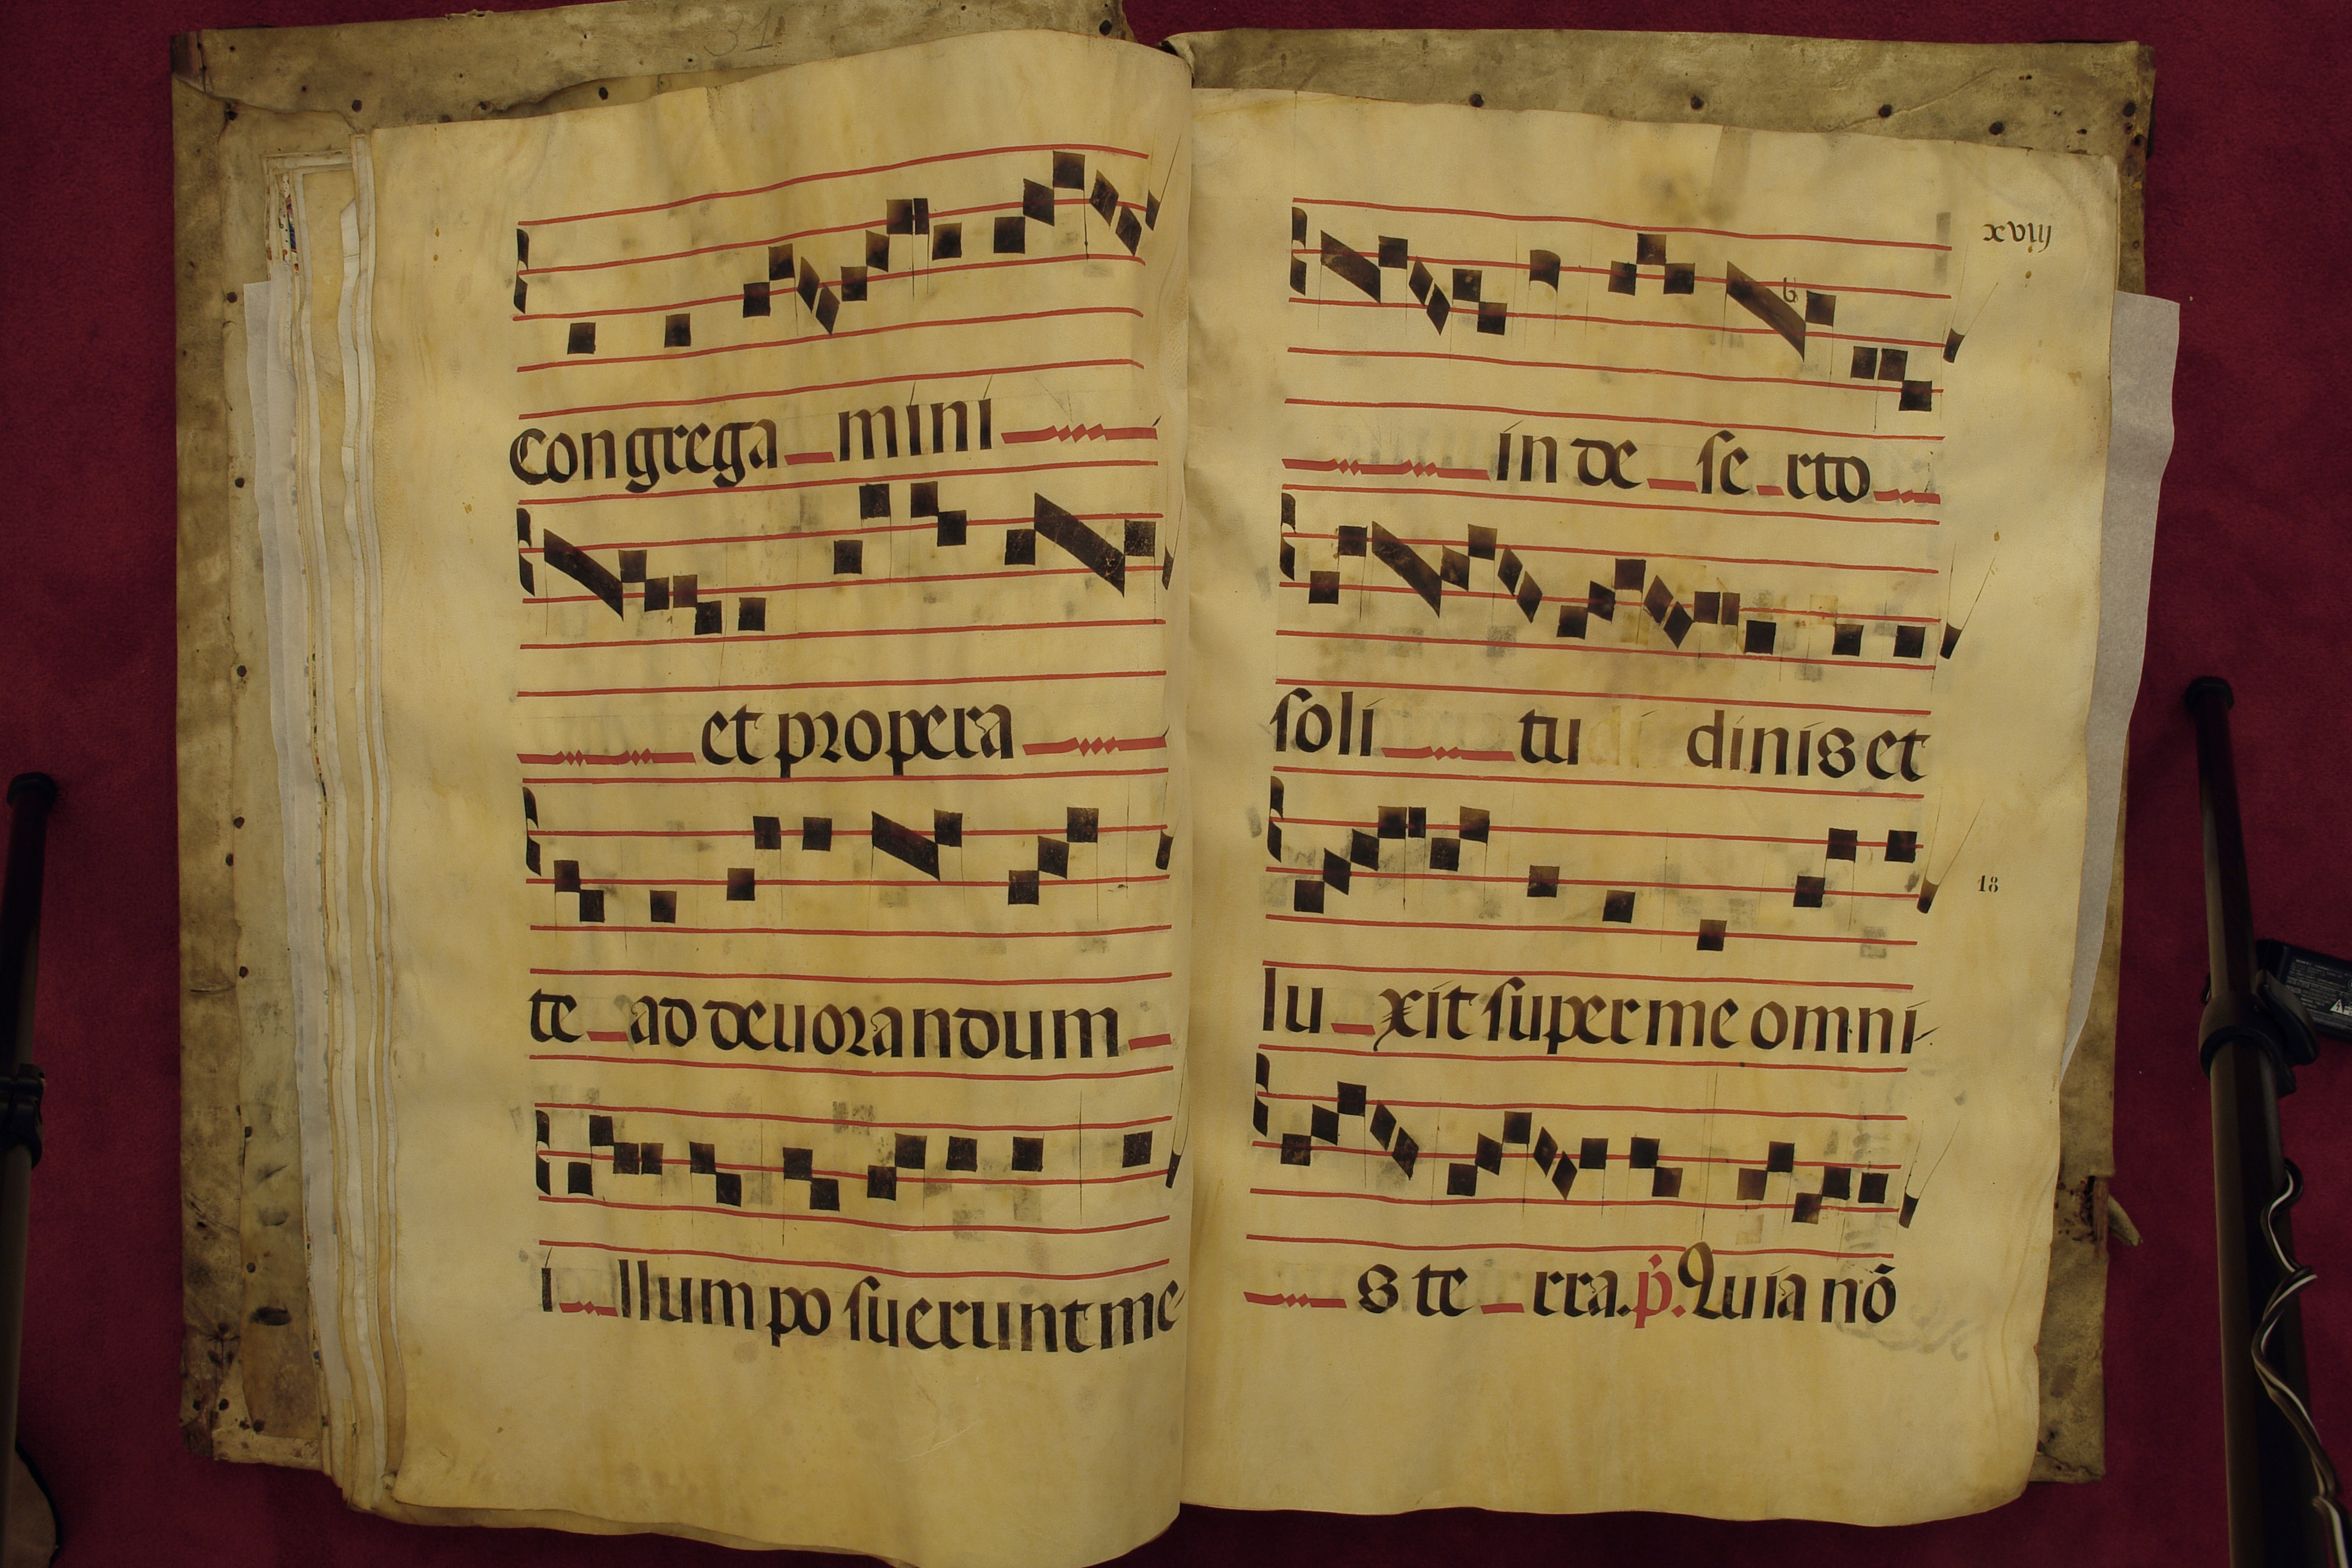 31
Congrega mini
et propera
te ad deuorandum
i llum po suerunt me
xviij
b
in de se rto
soli tu di dinis et
18
lu xit super me omni-
s te rra. p. Quia nō